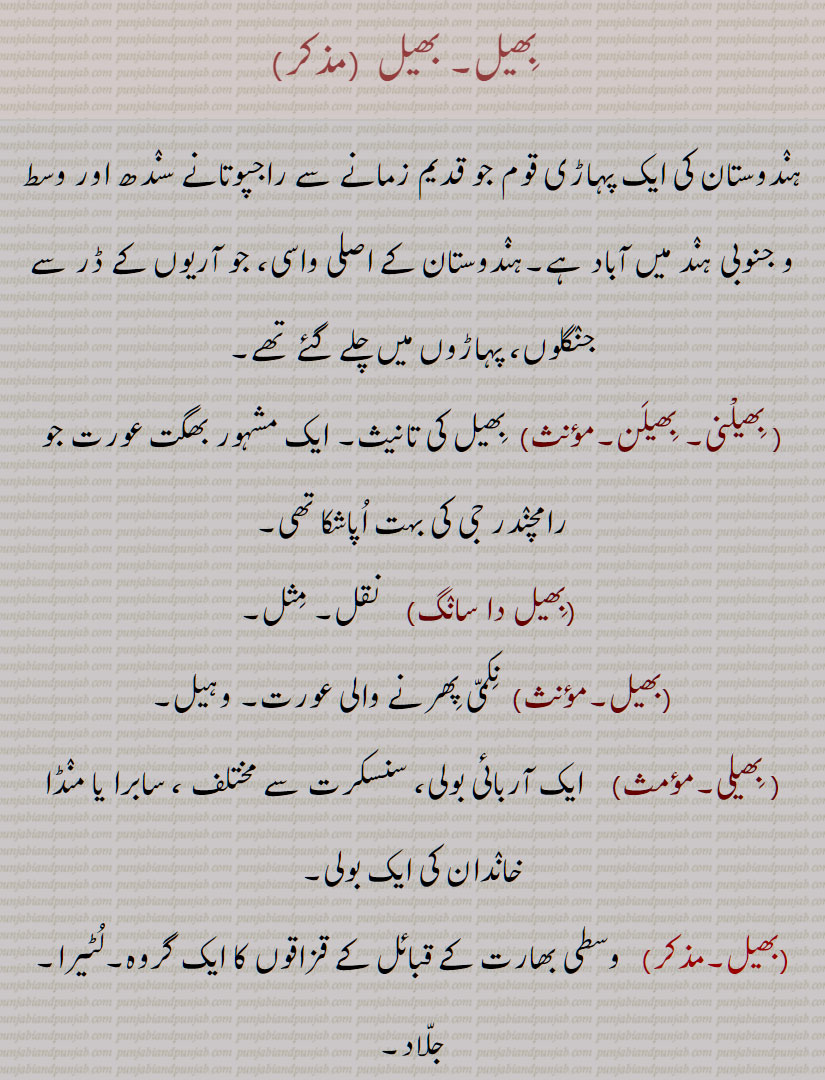 بِھیل۔ بھیل (مذکر)
ہنْدوستان کی ایک پہاڑی قوم جو قدیم زمانے سے راجپوتانے سنْدھ اور وسط
و جنوبی ہنْد میں آباد ہے۔ہنْدوستان کے اصلی واسی، جو آریوں کے ڈر سے
جنْگلوں، پہاڑوں میں چلے گئے تھے۔
(بِھیلْنی۔ بِھیلَن۔مؤنث) بِھیل کی تانیث۔ ایک مشہور بھگت عورت جو
رامچنْدر جی کی بہت اُپاشکا تھی۔
(بِھیل دا سانْگ) نقل۔ مِثل۔
(بھیل۔مؤنث) نِکمّی پِھرنے والی عورت۔ وہیل۔
(بِھیلی۔مؤمث) ایک آربائی بولی، سنسکرت سے مختلف ، سابرا یا منْڈا
خانْدان کی ایک بولی۔
(بھیل۔مذکر) وسطی بھارت کے قبائل کے قزاقوں کا ایک گروہ۔لُٹیرا۔
جلّاد ۔
punjabiandpunjab com